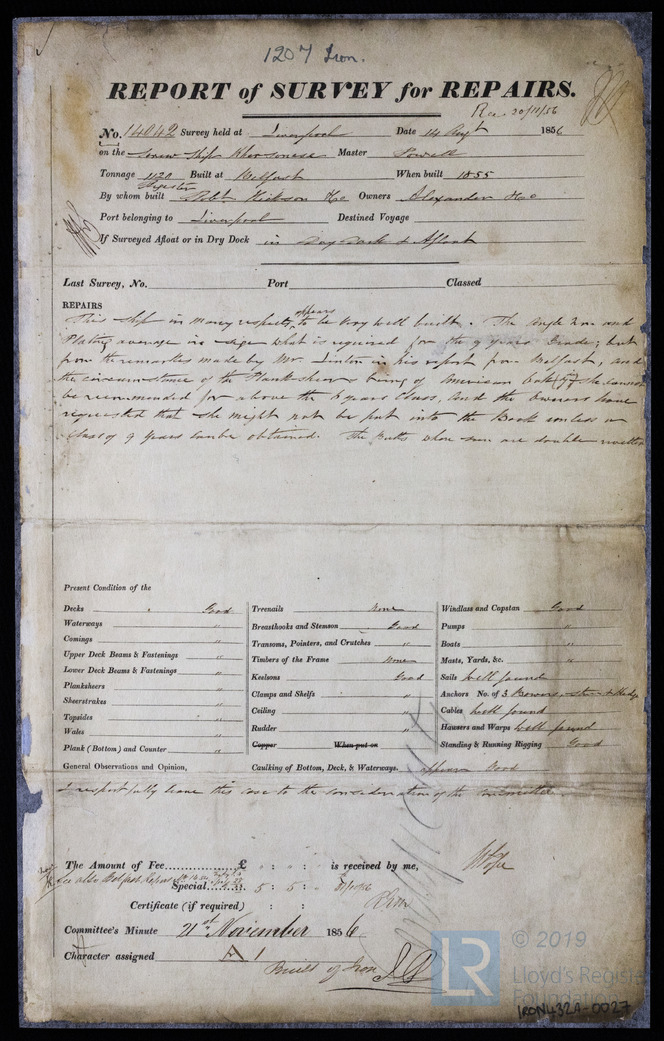 1207 Iron.
REPORT of SURVEY for REPAIRS.
Rec 20/11/56
No. 14042 Survey held at Liverpool Date 14 Augt 1856
on the Screw Ship Khersonese Master Powell
Tonnage 1120 Register Built at Belfast When built 1855
By whom built Robt Hickson & Co Owners Alexander & Co
Port belonging to Liverpool Destined Voyage
If Surveyed Afloat or in Dry Dock in Dry Dock & Afloat
Last Survey, No. Port Classed
REPAIRS
This ship in many respects appears to be very well built. The angle Iron and
Plating average in size what is required for the 9 years Grade; but
from the remarks made by Mr. Linton in his report from Belfast, and
the circumstance of the Plank sheers being of American Oak she cannot
be recommended for above the 6 years Class, and the Owners have
requested that she might not be put into the Book unless a
Class of 9 Years can be obtained. The Butts whose sum are double rivetted
Present Condition of the
Decks Good
Waterways "
Comings "
Upper Deck Beams & Fastenings "
Lower Deck Beams & Fastenings "
Planksheers "
Sheerstrakes "
Topsides "
Wales "
Plank (Bottom) and Counter "
Treenails None
Breasthooks and Stemson Good
Transoms, Pointers, and Crutches "
Timbers of the Frame None
Keelsons Good
Clamps and Shelfs "
Ceiling "
Rudder "
Copper When put on
Windlass and Capstan Good
Pumps "
Boats "
Masts, Yards, &c. "
Sails well found
Anchors No. of 3 Bowers, Stream & Kedge
Cables well found
Hawsers and Warps well found
Standing & Running Rigging Good
General Observations and Opinion, Caulking of Bottom, Deck, & Waterways. appears Good
I respectfully leave this case to the consideration of the Committee.
The Amount of Fee £ : " : " is received by me,
See also Belfast Report
Special 5 : 5 : "
Certificate (if required) : :
Committee's Minute 21st November 1856
Character assigned A 1
Built of Iron
LR
© 2019
Lloyd's Register
Foundation
IRON432A-0027